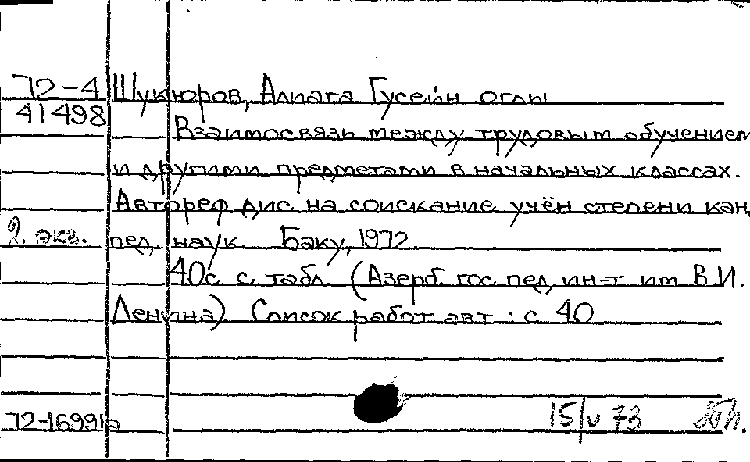 72-4 Шукюров, Алиага Гусейн оглы
41498
Взаимосвязь между трудовым обучением
и другими предметами в начальных классах.
Автореф дис. на соискание учён степени кан
2. экз. пед. наук Баку, 1972.
40с с табл (Азерб. гос пед ин-т им В.И.
Ленина) Список работ авт : с 40
72-16991
15/V 73